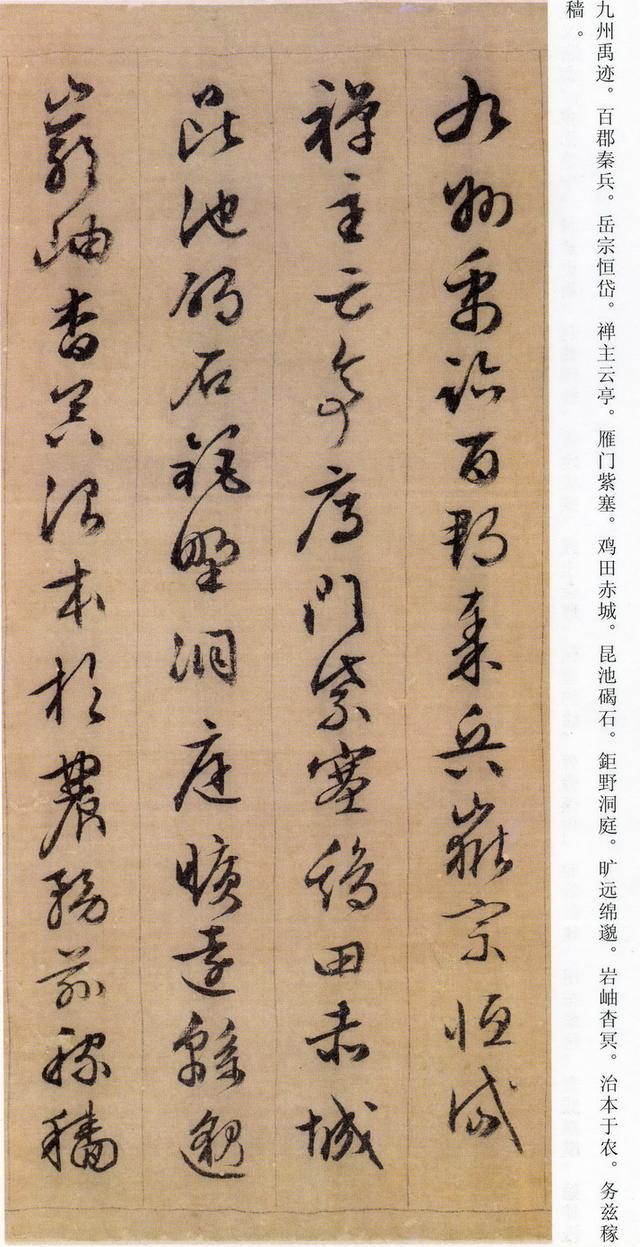 九州禹迹。百郡秦兵。岳宗恒岱。禅主云亭。雁门紫塞。鸡田赤城。昆池碣石。鉅野洞庭。旷远绵邈。岩岫杳冥。治本于农。务兹稼
穑。
九州禹跡百郡秦兵嶽宗恒岱
禪主云亭鴈門紫塞鷄田赤城
昆池碣石鉅野洞庭曠遠綿邈
巖岫杳冥治本於農務茲稼穡